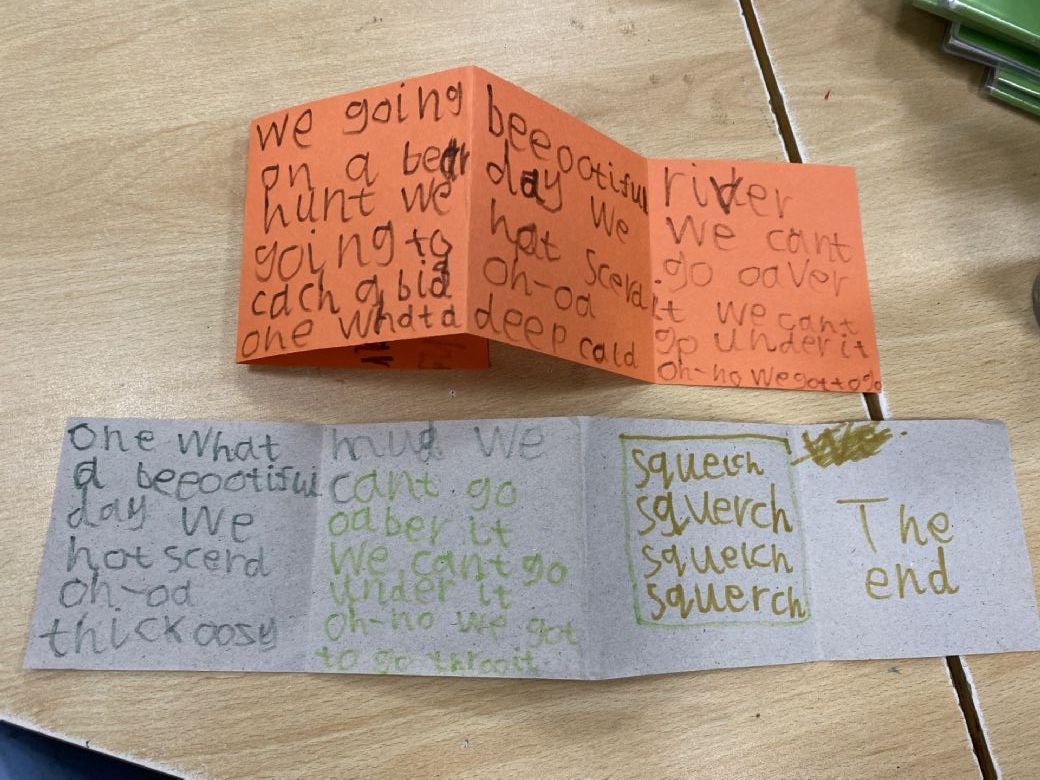 we going
on a bear
hunt we
going to
cach a big
one what a
beeootiful
day we
not scerd
oh-oa
deep cald
river
we cant
go oaver
it we cant
go under it
oh-no we got to go
one what
a beeootiful
day we
not scerd
oh-oa
thick oosy
mud we
cant go
oaber it
we cant go
under it
oh-no we got
to go throo it
squelch
squerch
squelch
squerch
The
end